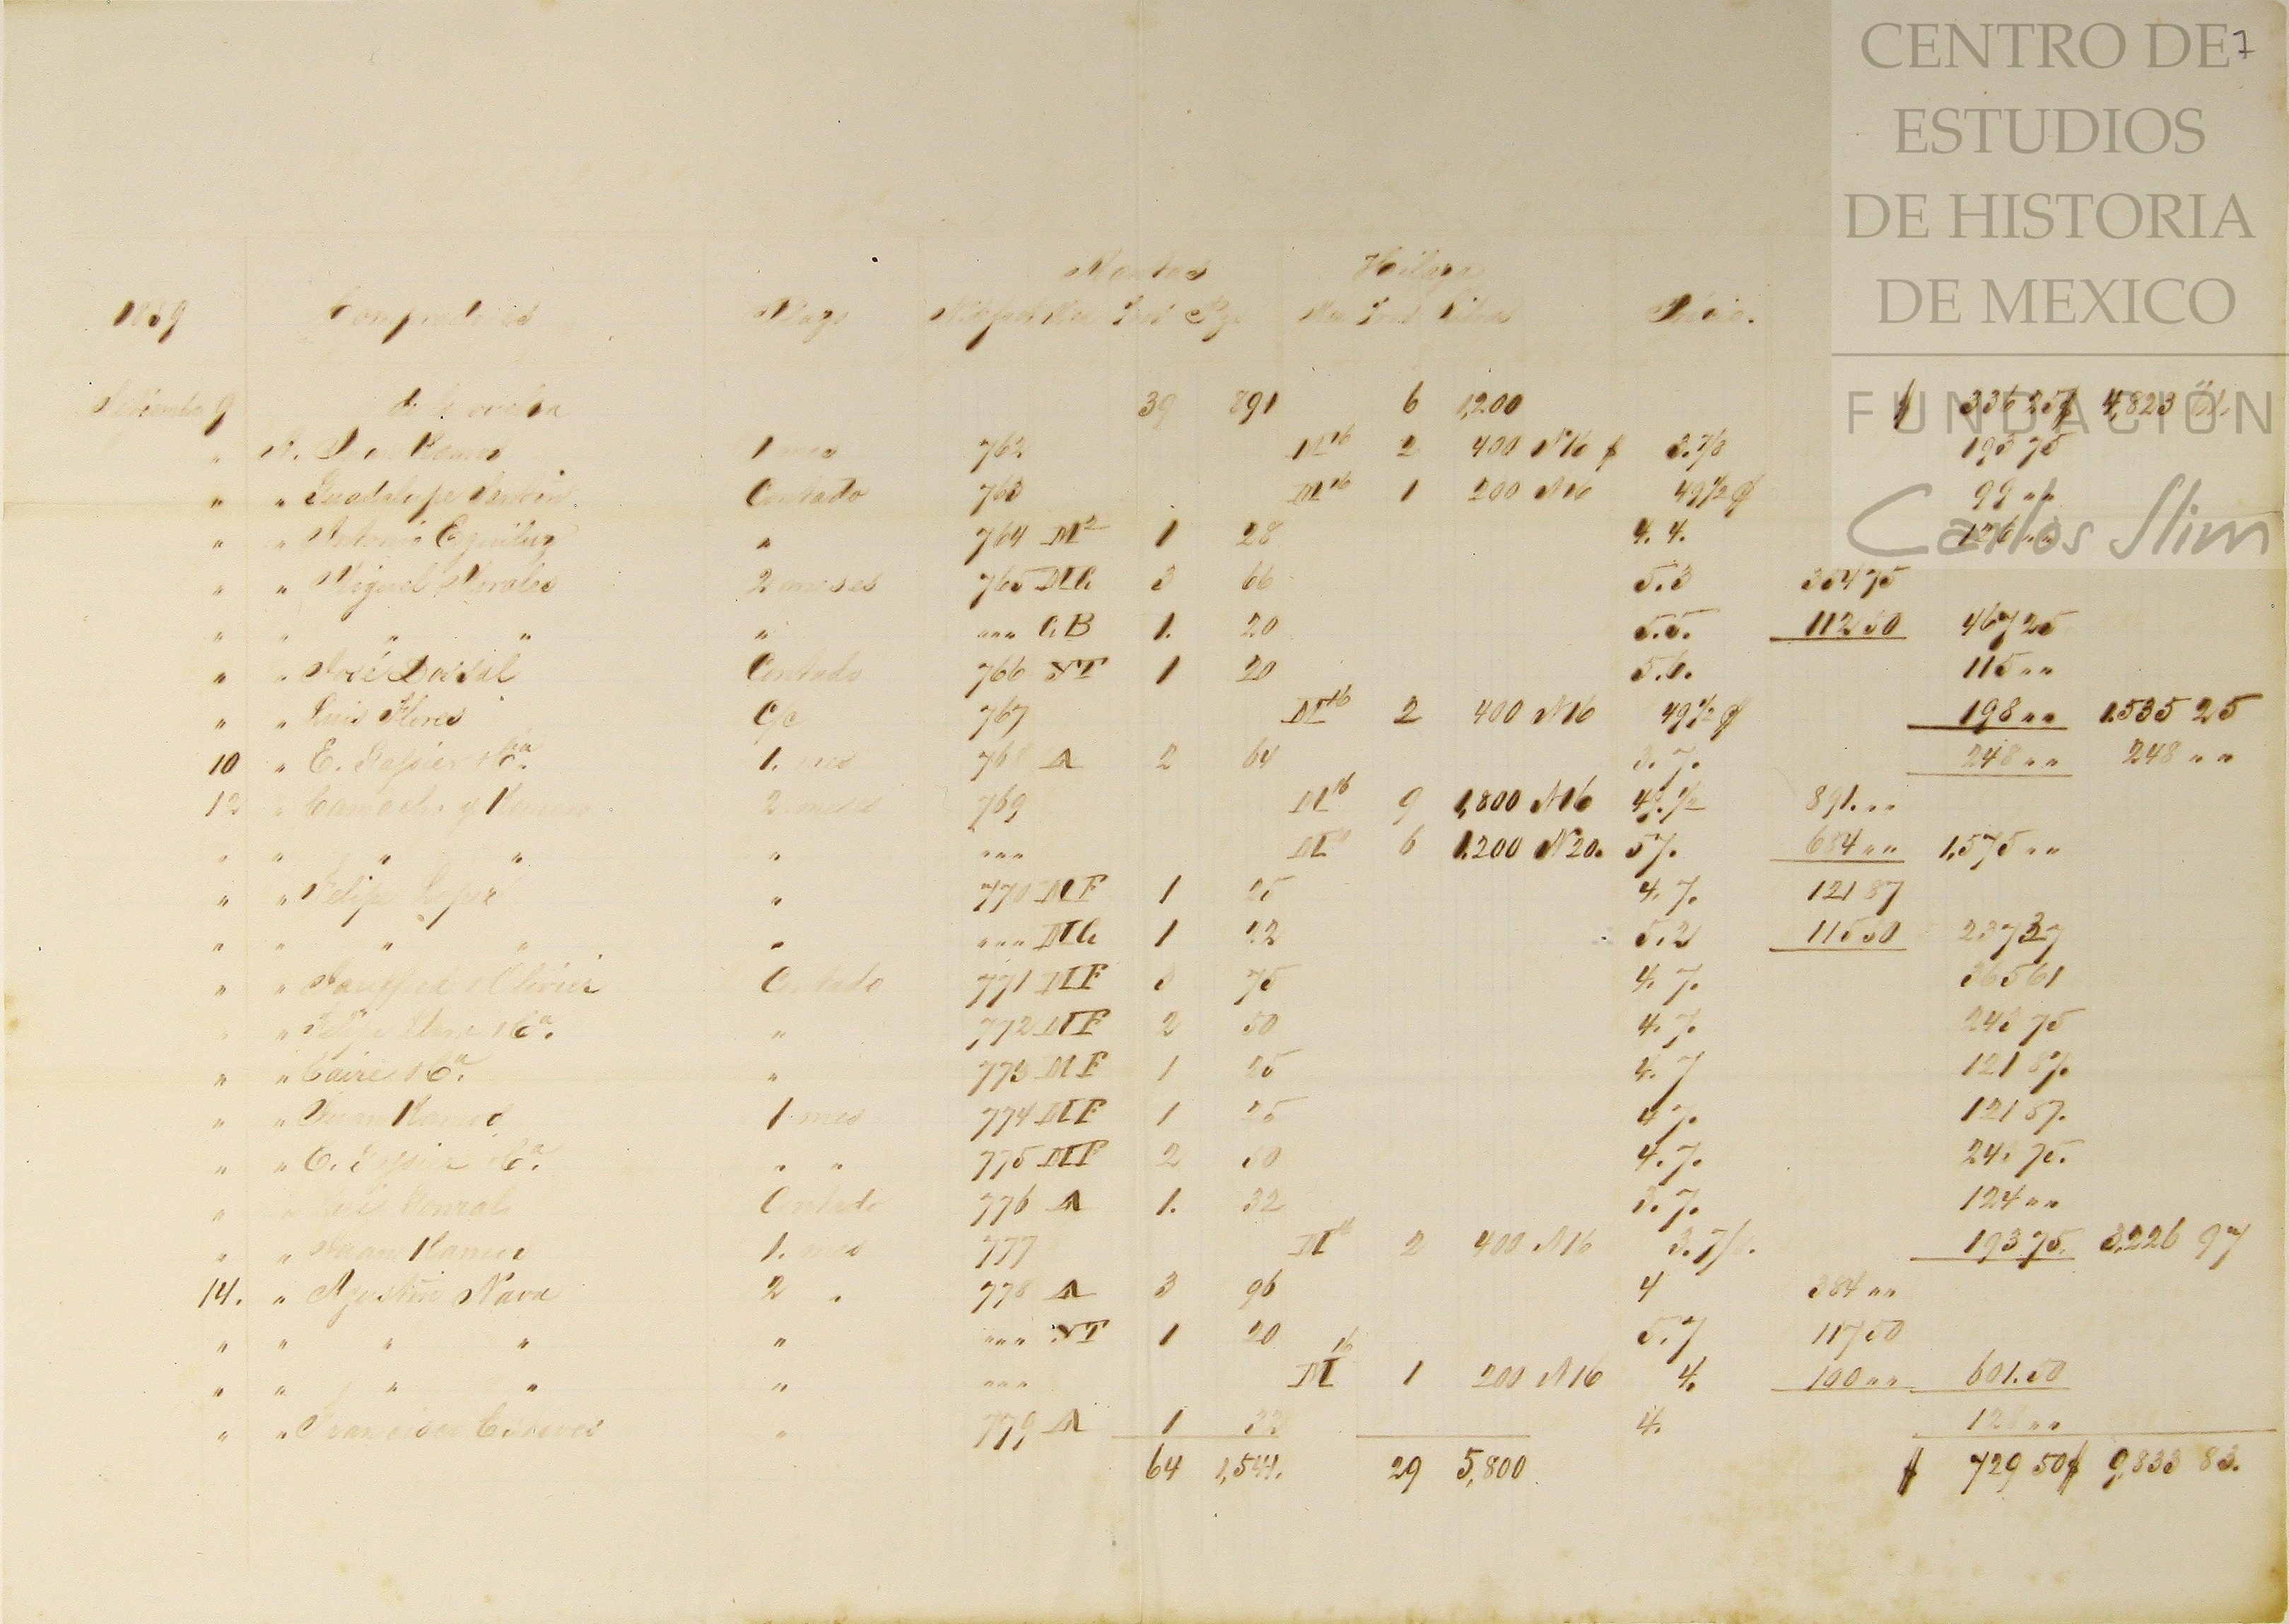 CENTRO DE 7
ESTUDIOS
DE HISTORIA
DE MEXICO
FUNDACIÓN
Carlos Slim
Mantas Hilaza
1869 Compradores Plazo Trcs Pzs Trcs Libras Precio.
Setiembre 9 de la vuelta 39 891 6 1,200 $ 336 25 $ 4,823
" S. Juan Ramos 1 mes 762 M16 2 400 N16 $ 3.7/8 193 75
" " Guadalupe Contado 763 M16 1 200 N16 49 1/2 ¢ 99 " "
" " Antonio Eguiluz " 764 M2 1 28 4. 4. 126 " "
" " Miguel Morales 2 meses 765 MC 3 66 5.3 354 75
" " " " " " " " CB 1. 20 5.5. 112 50 467 25
" " José Dossal Contado 766 NT 1 20 5.6. 115 " "
" " Luis Flores C/c 767 M16 2 400 N16 49 1/2 ¢ 198 " " 1.535 25
10 " E. Ca. 1. mes 768 A 2 64 3. 7. 248 " " 248 " "
12 " Camacho y 2 meses 769 M16 9 1,800 N16 49. 1/2 891. " "
" " " " " " " " M 6 1.200 N20. 57. 684 " " 1,575 " "
" " Felipe " 770 MF 1 25 4. 7. 121 87
" " " " " " " " MC 1 22 5.2 115 50 237 37
" " Olivier Contado 771 MF 3 75 4. 7. 365 61
" " Felipe Ca. " 772 MF 2 50 4. 7. 243 75
" " Caire Ca. " 773 MF 1 25 4. 7 121 87.
" " Juan Ramos 1 mes 774 MF 1 25 4 7. 121 87.
" " E. Ca. " " 775 MF 2 50 4. 7. 243 75.
" Contado 776 A 1. 32 3. 7. 124 " "
" " Juan Ramos 1. mes 777 M16 2 400 N16 3. 7/8. 193 75. 3,226 97
14. " Agustin Nava 2 " 778 A 3 96 4 384 " "
" " " " " " " " NT 1 20 5. 7 117 50
" " " " " " " " M16 1 200 N16 4. 100 " " 601. 50
" " Francisco " 779 A 1 32 4. 128 " "
64 1,541. 29 5,800 $ 729 50 $ 9,833 83.